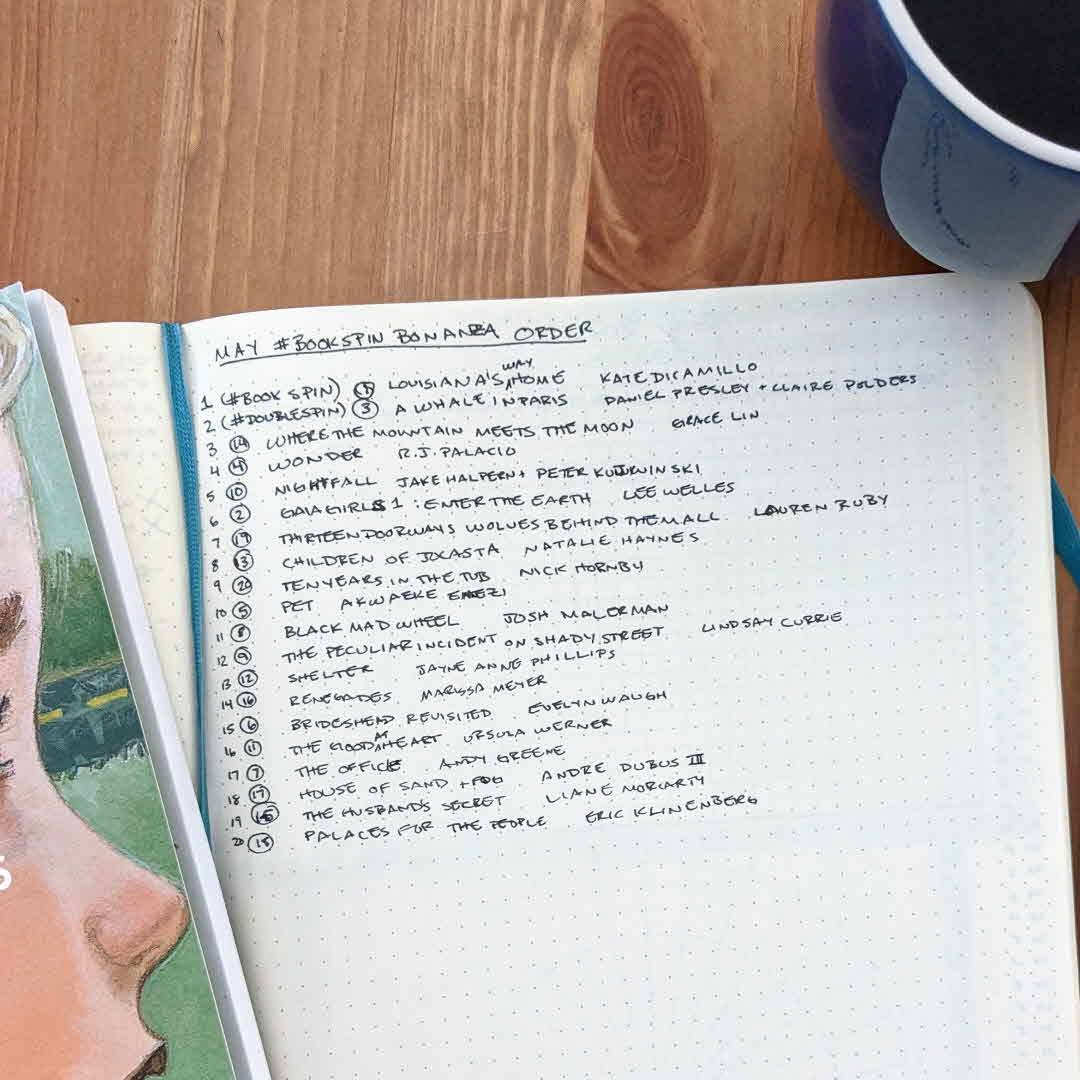 MAY #BOOKSPIN BONANZA ORDER
1 (#BOOK SPIN) LOUISIANA'S WAY HOME KATE DICAMILLO
2 (#DOUBLESPIN) 3 A WHALE IN PARIS DANIEL PRESLEY + CLAIRE POLDERS
3 14 WHERE THE MOUNTAIN MEETS THE MOON GRACE LIN
4 4 WONDER R.J. PALACIO
5 10 NIGHTFALL JAKE HALPERN + PETER KUJAWINSKI
6 2 GAIA GIRLS 1 : ENTER THE EARTH LEE WELLES
7 19 THIRTEEN DOORWAYS WOLVES BEHIND THEM ALL LAUREN RUBY
8 13 CHILDREN OF JOCASTA NATALIE HAYNES
9 20 TEN YEARS IN THE TUB NICK HORNBY
10 5 PET AKWAEKE EMEZI
11 8 BLACK MAD WHEEL JOSH MALERMAN
12 9 THE PECULIAR INCIDENT ON SHADY STREET LINDSAY CURRIE
13 12 SHELTER JAYNE ANNE PHILLIPS
14 16 RENEGADES MARISSA MEYER
15 6 BRIDESHEAD REVISITED EVELYN WAUGH
16 11 THE GOOD AT HEART URSULA WERNER
17 7 THE OFFICE ANDY GREENE
18 17 HOUSE OF SAND + FOG ANDRE DUBUS III
19 15 THE HUSBAND'S SECRET LIANE MORIARTY
20 18 PALACES FOR THE PEOPLE ERIC KLINENBERG